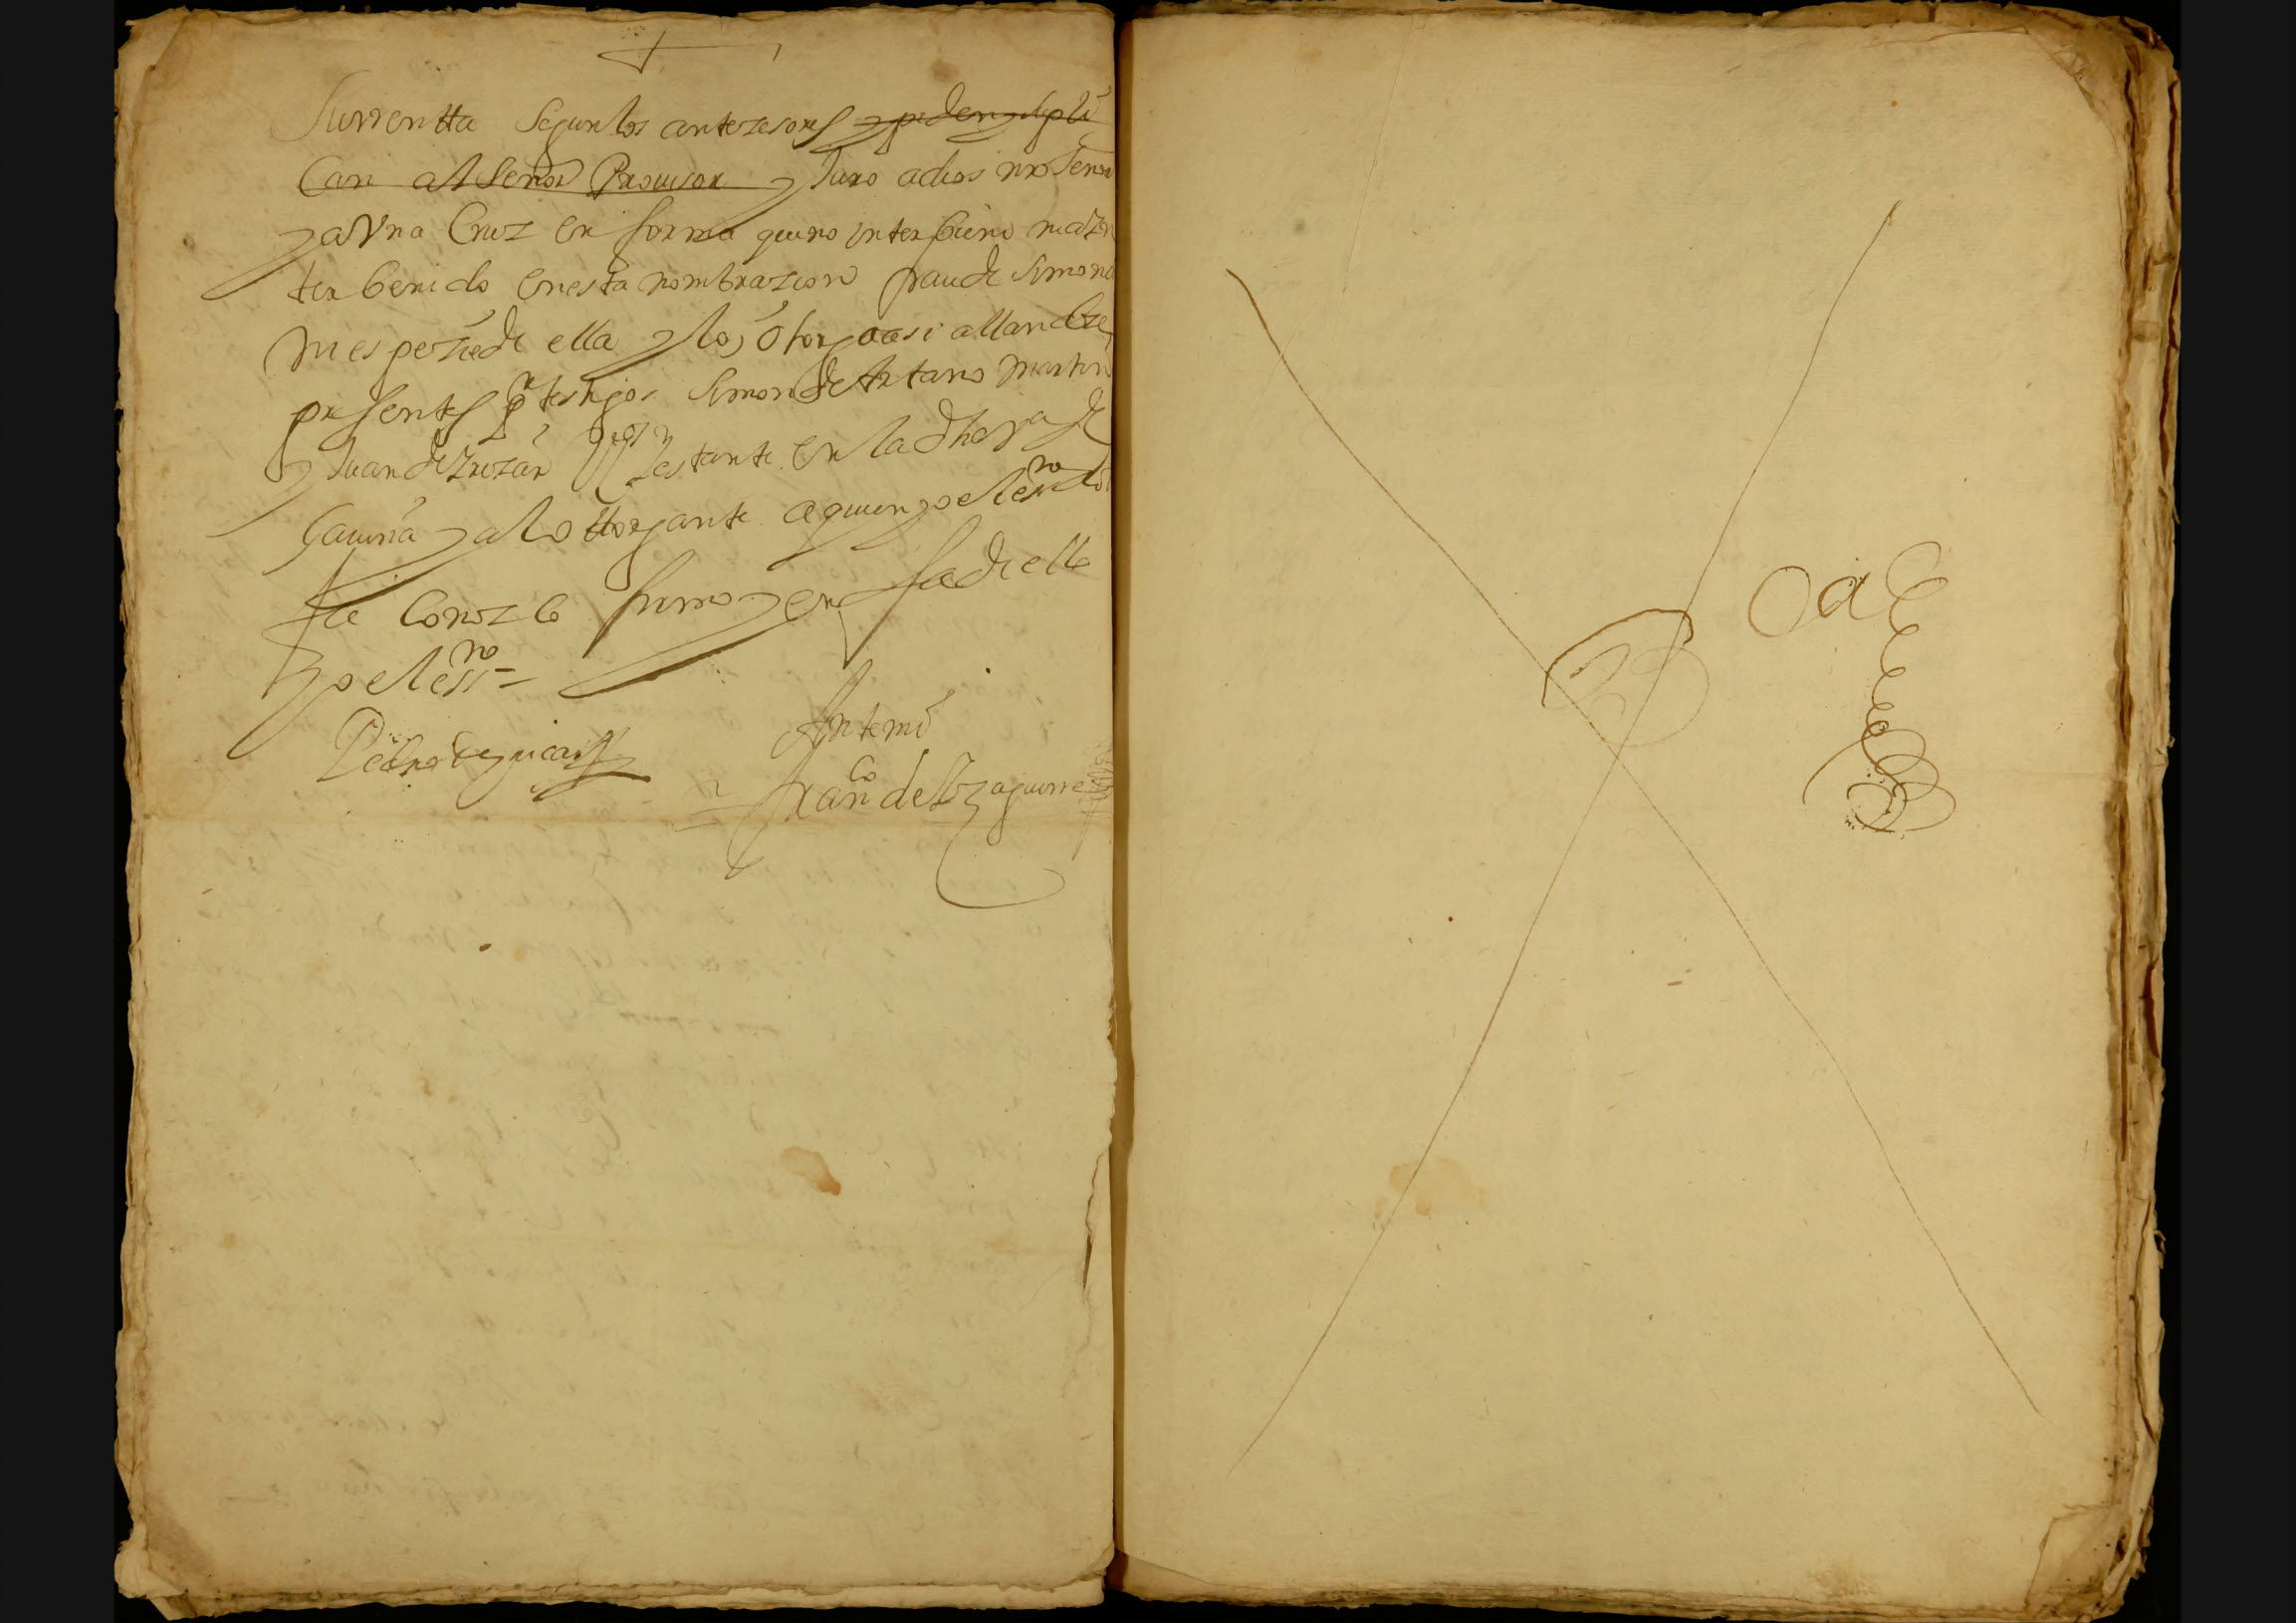 Su rrentta segun los antezesores y piden y supli
can al Señor Provisor y Juro a dios nro Señor
y a Vna Cruz en forma que no interbiene ni a yn
terbenido en esta nombrazion fraude simoni
ni espezie de ella y lo otorgo asi allandose
presentes por testigos Simon de Artano Martin
y Juan de estante en la dha va de
Gauiria y al ottorgante a quien yo el essno doi
fee Conozco firmo y en fee de ello
yo el essno =
Pedro
Ante mi
Franco de Lizaguirre